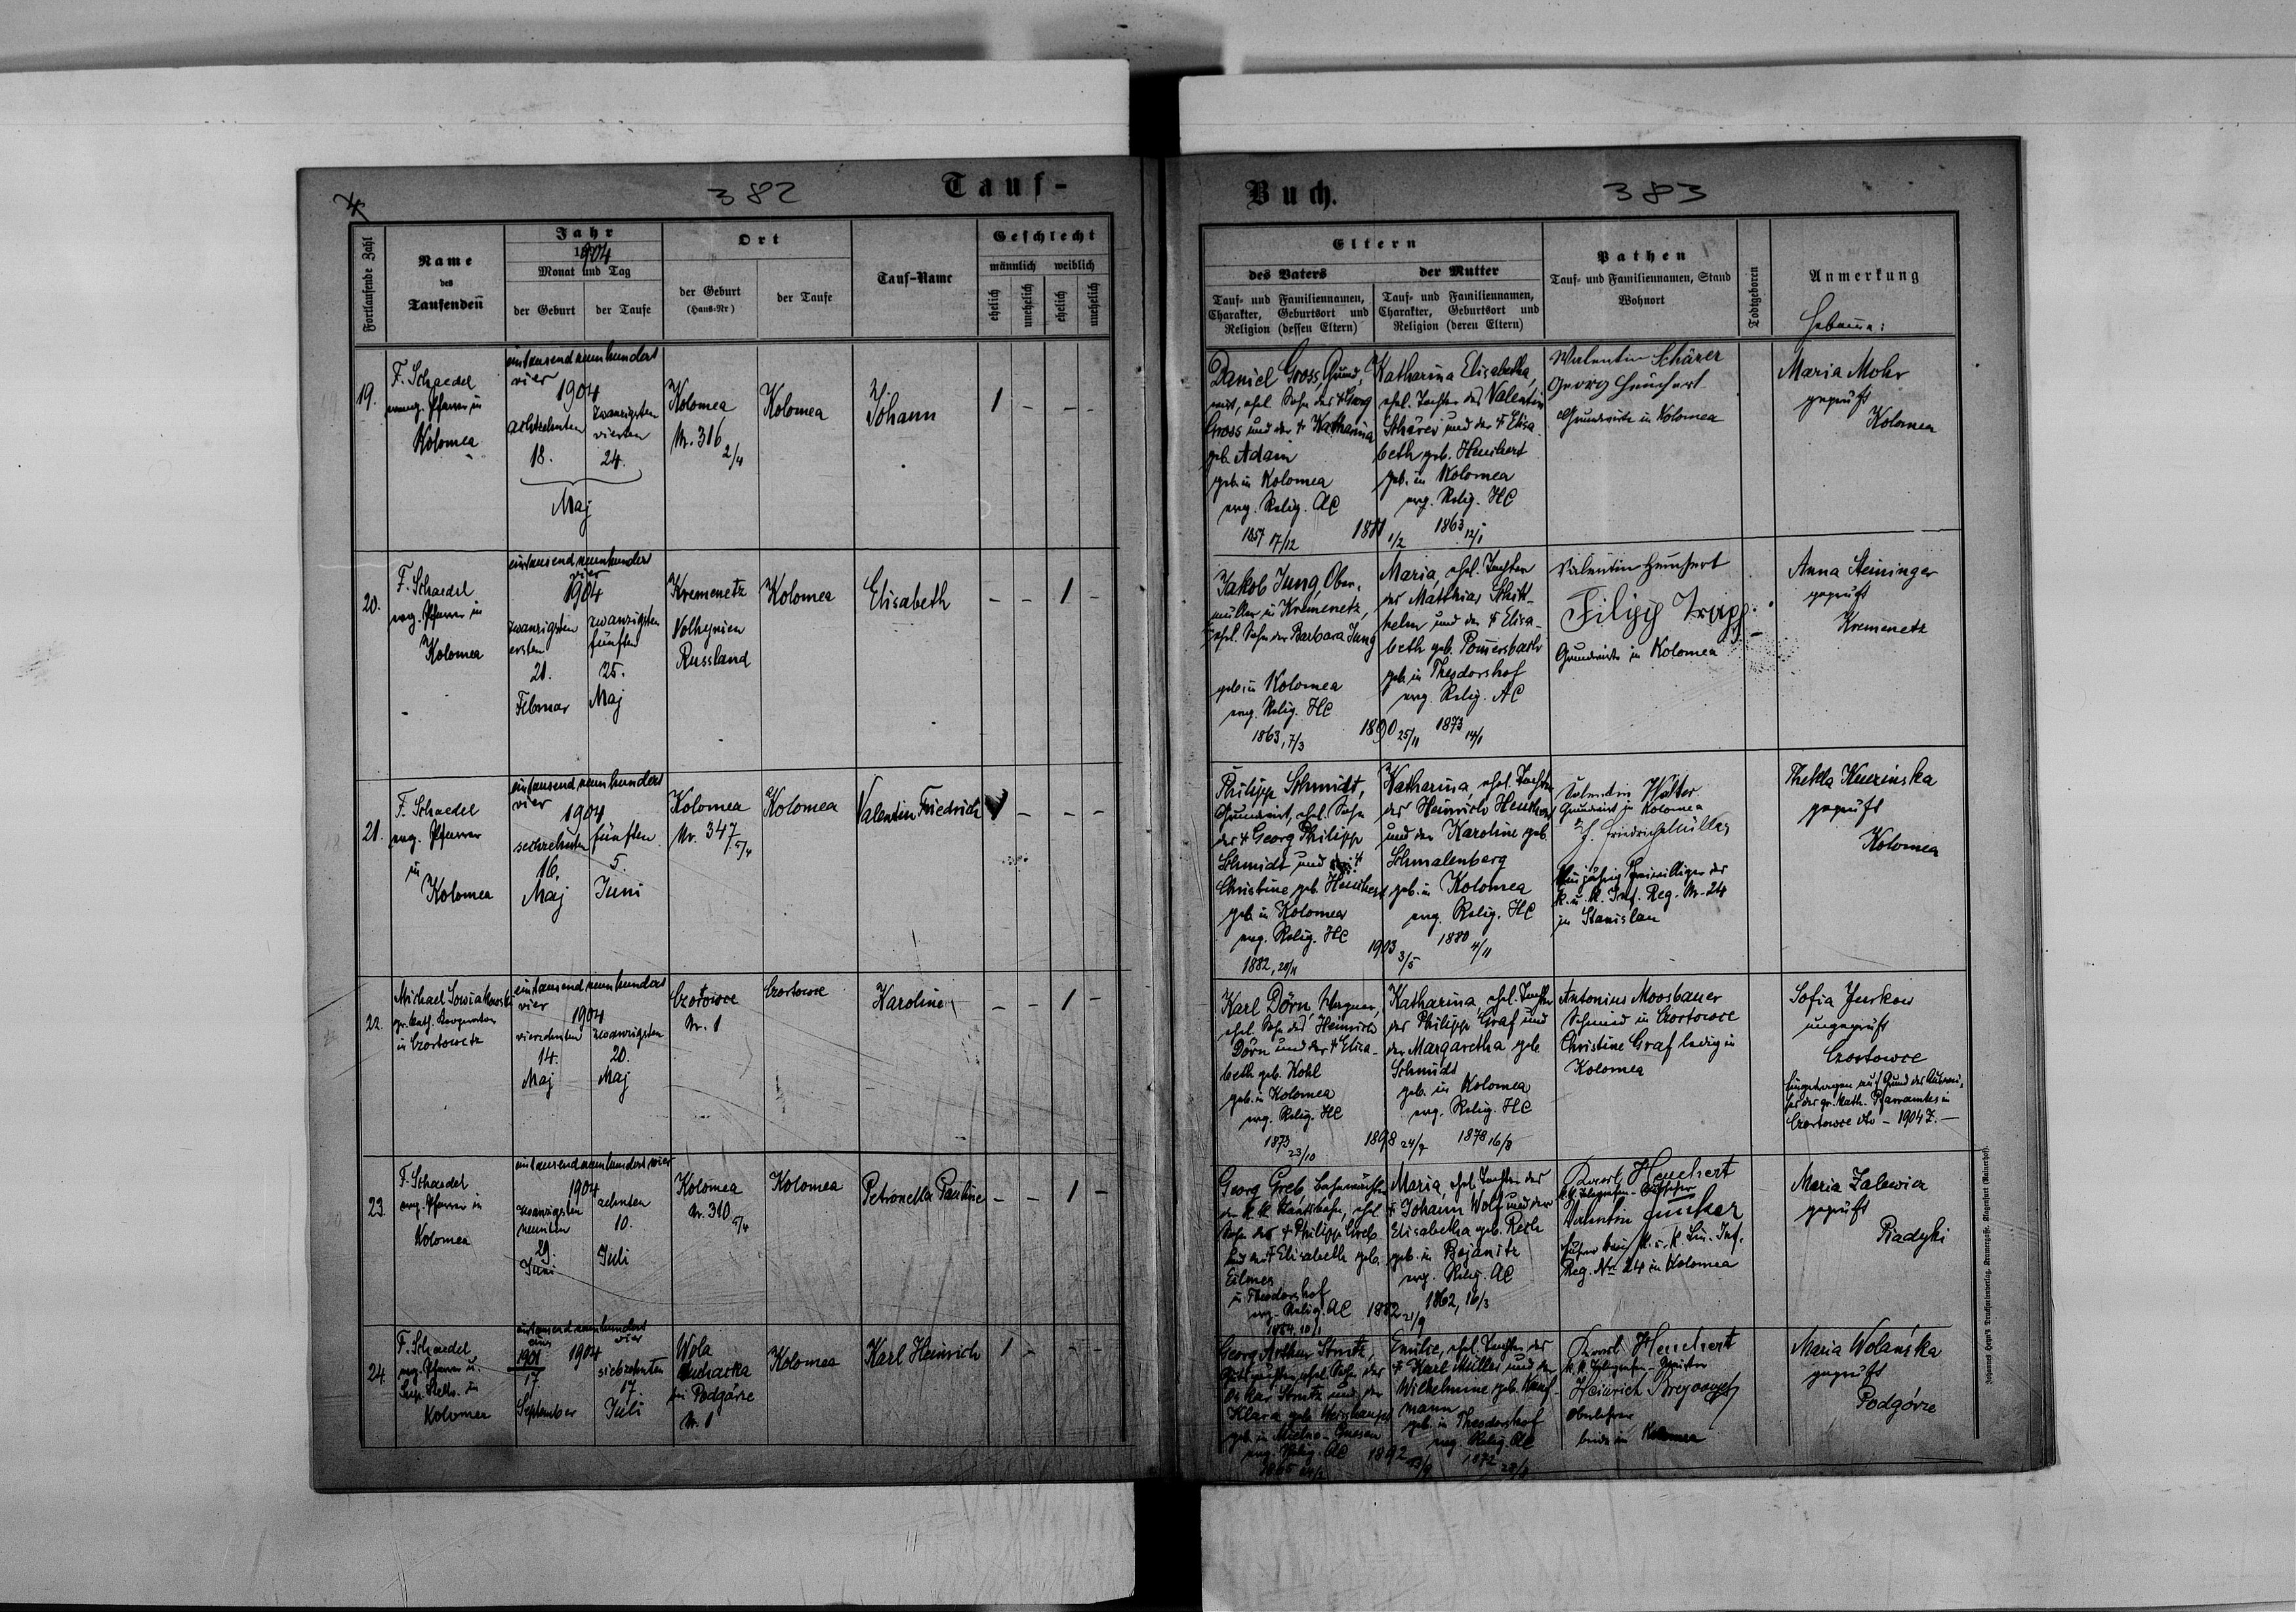 382
Tauf-
4
Fortlaufende Zahl
Name
des
Taufenden
Jahr
1904
Monat und Tag
der Geburt
der Taufe
Ort
der Geburt
(Haus-Nr)
der Taufe
Tauf-Name
Geschlecht
männlich
weiblich
ehelich
unehelich
ehelich
unehelich
19.
F. Schaedel
evang. Pfarrer in
Kolomea
eintausend neunhundert
vier
1904
achtzehnten
18.
zwanzigsten
vierten
24.
Maj
Kolomea
Nr. 316
2/4
Kolomea
Johann
1 - - -
20.
F. Schaedel
evg. Pfarrer in
Kolomea
eintausend neunhundert
vier
1904
zwanzigsten
ersten
21.
Februar
zwanzigsten
fünften
25.
Maj
Kremenetz
Volhynien
Russland
Kolomea
Elisabeth
- - 1 -
21.
F. Schaedel
evg. Pfarrer
in
Kolomea
eintausend neunhundert
vier
1904
sechzehnten
16.
Maj
fünften
5.
Juni
Kolomea
Nr. 347
5/4
Kolomea
Valentin Friedrich
1 - - -
22.
Michael Sowiakowski
gr. kath. Cooperator
in Czortowetz
eintausend neunhundert
vier
1904
vierzehnten
14.
Maj
zwanzigsten
20.
Maj
Czortowce
Nr. 1
Czortowce
Karoline
- - 1 -
23.
F. Schaedel
evg. Pfarrer in
Kolomea
eintausend neunhundert vier
1904
zwanzigsten
neunten
29.
Juni
zehnten
10.
Juli
Kolomea
Nr. 310
5/4
Kolomea
Petronella Pauline
- - 1 -
24.
F. Schaedel
evg. Pfarrer u.
Sup. Stellv. in
Kolomea
eintausend neunhundert
vier
1901
17.
September
1904
siebzehnten
17.
Juli
Wola
bei Podgórze
Nr. 1
Kolomea
Karl Heinrich
1 - - -
Buch.
383
Eltern
des Vaters
Tauf- und Familiennamen,
Charakter, Geburtsort und
Religion (dessen Eltern)
der Mutter
Tauf- und Familiennamen,
Charakter, Geburtsort und
Religion (deren Eltern)
Pathen
Tauf- und Familiennamen, Stand
Wohnort
Todtgeboren
Anmerkung
Hebamme:
Daniel Gross, Grund-
wirt, ehel. Sohn des † Georg
Gross und der † Katharina
geb. Adam
geb. in Kolomea
evg. Relig. AC
1857 17/12
1881 1/2
Katharina Elisabetha,
ehel. Tochter des Valentin
Schärer und der † Elisa-
beth geb. Heuchert
geb. in Kolomea
evg. Relig. HC
1863 12/1
Valentin Schärer
Georg Heuchert
Grundwirte in Kolomea
Maria Mohr
geprüft
Kolomea
Jakob Jung, Ober-
müller in Kremenetz,
ehel. Sohn der Barbara Jung
geb. in Kolomea
evg. Relig. HC
1863, 7/3
1890 25/11
Maria, ehel. Tochter
des Matthias Schick-
helm und der † Elisa-
beth geb. Pommersbach
geb. in Theodorshof
evg. Relig. AC
1873 14/1
Valentin Heuchert
Filipp Trapp
Grundwirte in Kolomea
Anna Steininger
geprüft
Kremenetz
Philipp Schmidt,
Grundwirt, ehel. Sohn
des † Georg Philipp
Schmidt und der †
Christine geb. Heuchert
geb. in Kolomea
evg. Relig. HC
1882, 28/11
1903 3/5
Katharina, ehel. Tochter
des Heinrich Heuchert
und der Karoline geb.
Schmalenberg
geb. in Kolomea
evg. Relig. HC
1880 4/11
Valentin Walter
Grundwirt in Kolomea
Friedrich Müller
Einjährig Freiwilliger des
k. u. k. Inf. Reg. Nr. 24
in Stanislau
Thekla Kuzinska
geprüft
Kolomea
Karl Dörn, Wagner,
ehel. Sohn des Heinrich
Dörn und der † Elisa-
beth geb. Kohl
geb. in Kolomea
evg. Relig. HC
1873 23/10
1898 24/7
Katharina, ehel. Tochter
des Philipp Graf und
der Margaretha geb.
Schmidt
geb. in Kolomea
evg. Relig. HC
1878 16/8
Antonius Moosbauer
Schmied in Czortowce
Christine Graf ledig in
Kolomea
Sofia Jurkow
ungeprüft
Czortowce
Eingetragen auf Grund des
des gr. kath. Pfarramtes in
Czortowce dto - 1904 Z. -
Georg Greb, Bahnwächter
der k. k. Staatsbahn, ehel.
Sohn des † Philipp Greb
und der † Elisabeth geb.
Eilmes
in Theodorshof
evg. Relig. AC
1864, 10/1
1882 21/9
Maria, ehel. Tochter des
† Johann Wolf und der
Elisabetha geb. Resch
geb. in Bojanitz
evg. Relig. AC
1862, 16/3
Karl Heuchert
k. k. Telegrafen-Aufseher
Valentin Junker
Führer beim k. u. k. Lin. Inf.
Reg. Nr. 24 in Kolomea
Maria Zalewicz
geprüft
Piadyki
Georg Arthur Strutz,
ehel. Sohn des
Oskar Strutz und der
Klara geb. Weisshaupt
geb. in
evg. Relig. AC
1865
1892 13/9
Emilie, ehel. Tochter des
† Karl Müller und der
Wilhelmine geb. Kauf-
mann
geb. in Theodorshof
evg. Relig. AC
1872
Karl Heuchert
k. k. Telegrafen-
Heinrich
Oberlehrer
beide in Kolomea
Maria Wolańska
geprüft
Podgórze